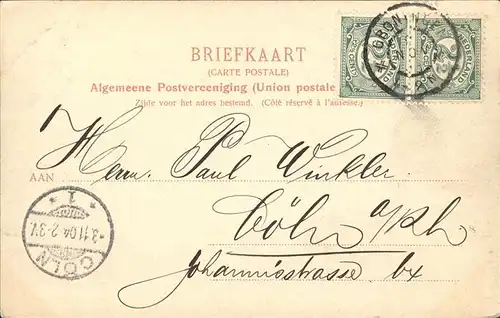 BRIEFKAART
(CARTE POSTALE)
Algemeene Postvereeniging (Union postale
Zijde voor het adres bestemd. (Côté réservé à l'adresse.)
AAN
Herrn Paul Winkler
Cöln a/Rh
Johannisstrasse
* 1 *
3.11.04.2-3V.
CÖLN
NEDERLAND
2½